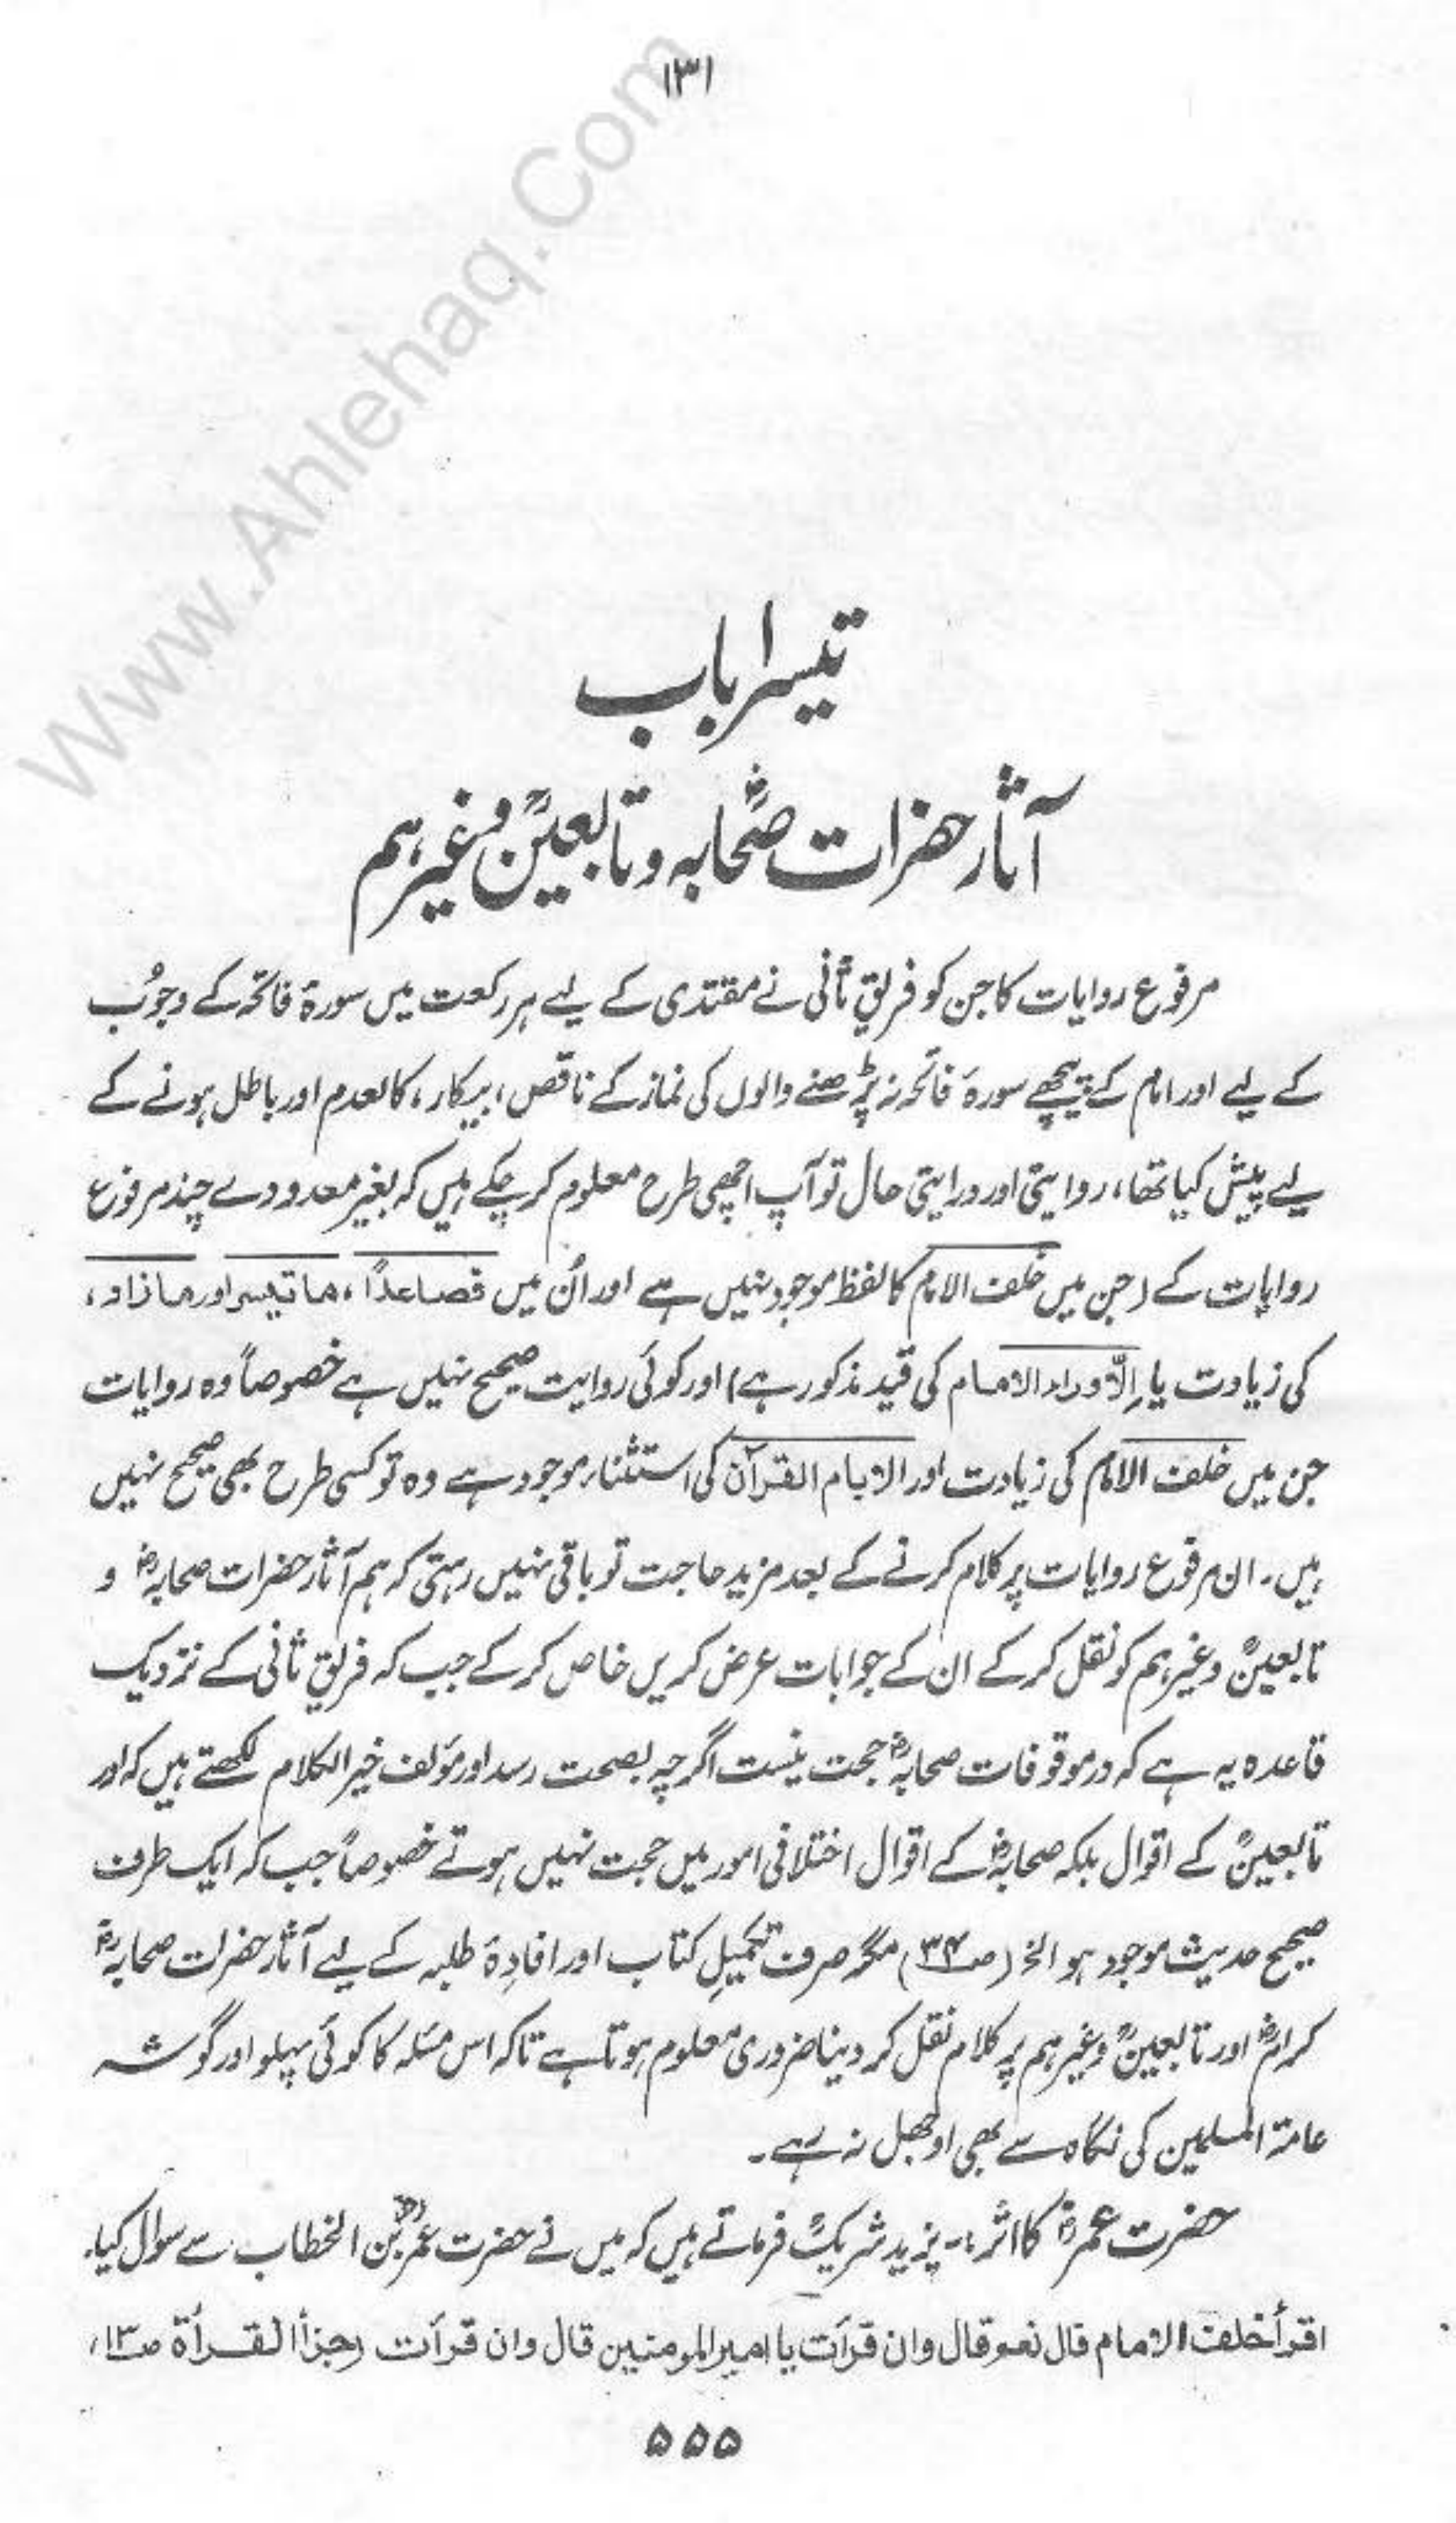 ۱۳۱
www.Ahlehaq.Com
تیسرا باب
آثار حضرات صحابہؓ و تابعینؒ وغیرہم
مرفوع روایات کا جن کو فریق ثانی نے مقتدی کے لیے ہر رکعت میں سورۃ فاتحہ کے وجوُب
کے لیے اور امام کے پیچھے سورۃ فاتحہ نہ پڑھنے والوں کی نماز کے ناقص، بیکار، کالعدم اور باطل ہونے کے
لیے پیش کیا تھا، روایتی اور درایتی حال تو آپ اچھی طرح معلوم کر چکے ہیں کہ بغیر معدودے چند مرفوع
روایات کے (جن میں خلف الامام کا لفظ موجود نہیں ہے اور اُن میں فصاعدًا، ما تیسر اور ما زاد،
کی زیادت یا اِلّا وراء الامام کی قید مذکور ہے) اور کوئی روایت صحیح نہیں ہے خصوصاً وہ روایات
جن میں خلف الامام کی زیادت اور الا بام القرآن کی استثناء موجود ہے وہ تو کسی طرح بھی صحیح نہیں
ہیں۔ ان مرفوع روایات پر کلام کرنے کے بعد مزید حاجت تو باقی نہیں رہتی کہ ہم آثار حضرات صحابہؓ و
تابعینؒ وغیرہم کو نقل کر کے ان کے جوابات عرض کریں خاص کر کے جب کہ فریق ثانی کے نزدیک
قاعدہ یہ ہے کہ در موقوفات صحابہؓ حجت نیست اگرچہ بصحت رسد اور مؤلف خیر الکلام لکھتے ہیں کہ اور
تابعینؒ کے اقوال بلکہ صحابہؓ کے اقوال اختلافی امور میں حجت نہیں ہوتے خصوصاً جب کہ ایک طرف
صحیح حدیث موجود ہو الخ (صـ۳۴) مگر صرف تکمیلِ کتاب اور افادۂ طلبہ کے لیے آثار حضرات صحابہؓ
کرامؓ اور تابعینؒ وغیرہم پر کلام نقل کر دینا ضروری معلوم ہوتا ہے تاکہ اس مسٔلہ کا کوئی پہلو اور گوشہ
عامۃ المسلمین کی نگاہ سے بھی اوجھل نہ رہے۔
حضرت عمرؓ کا اثر:- یزید شریکؒ فرماتے ہیں کہ میں نے حضرت عمرؓ بن الخطاب سے سوال کیا۔
اقرأ خلف الامام قال نعم قال وان قرأت یا امیر المومنین قال وان قرأت (جزأ القرأۃ صـ۱۳،
۵۵۵